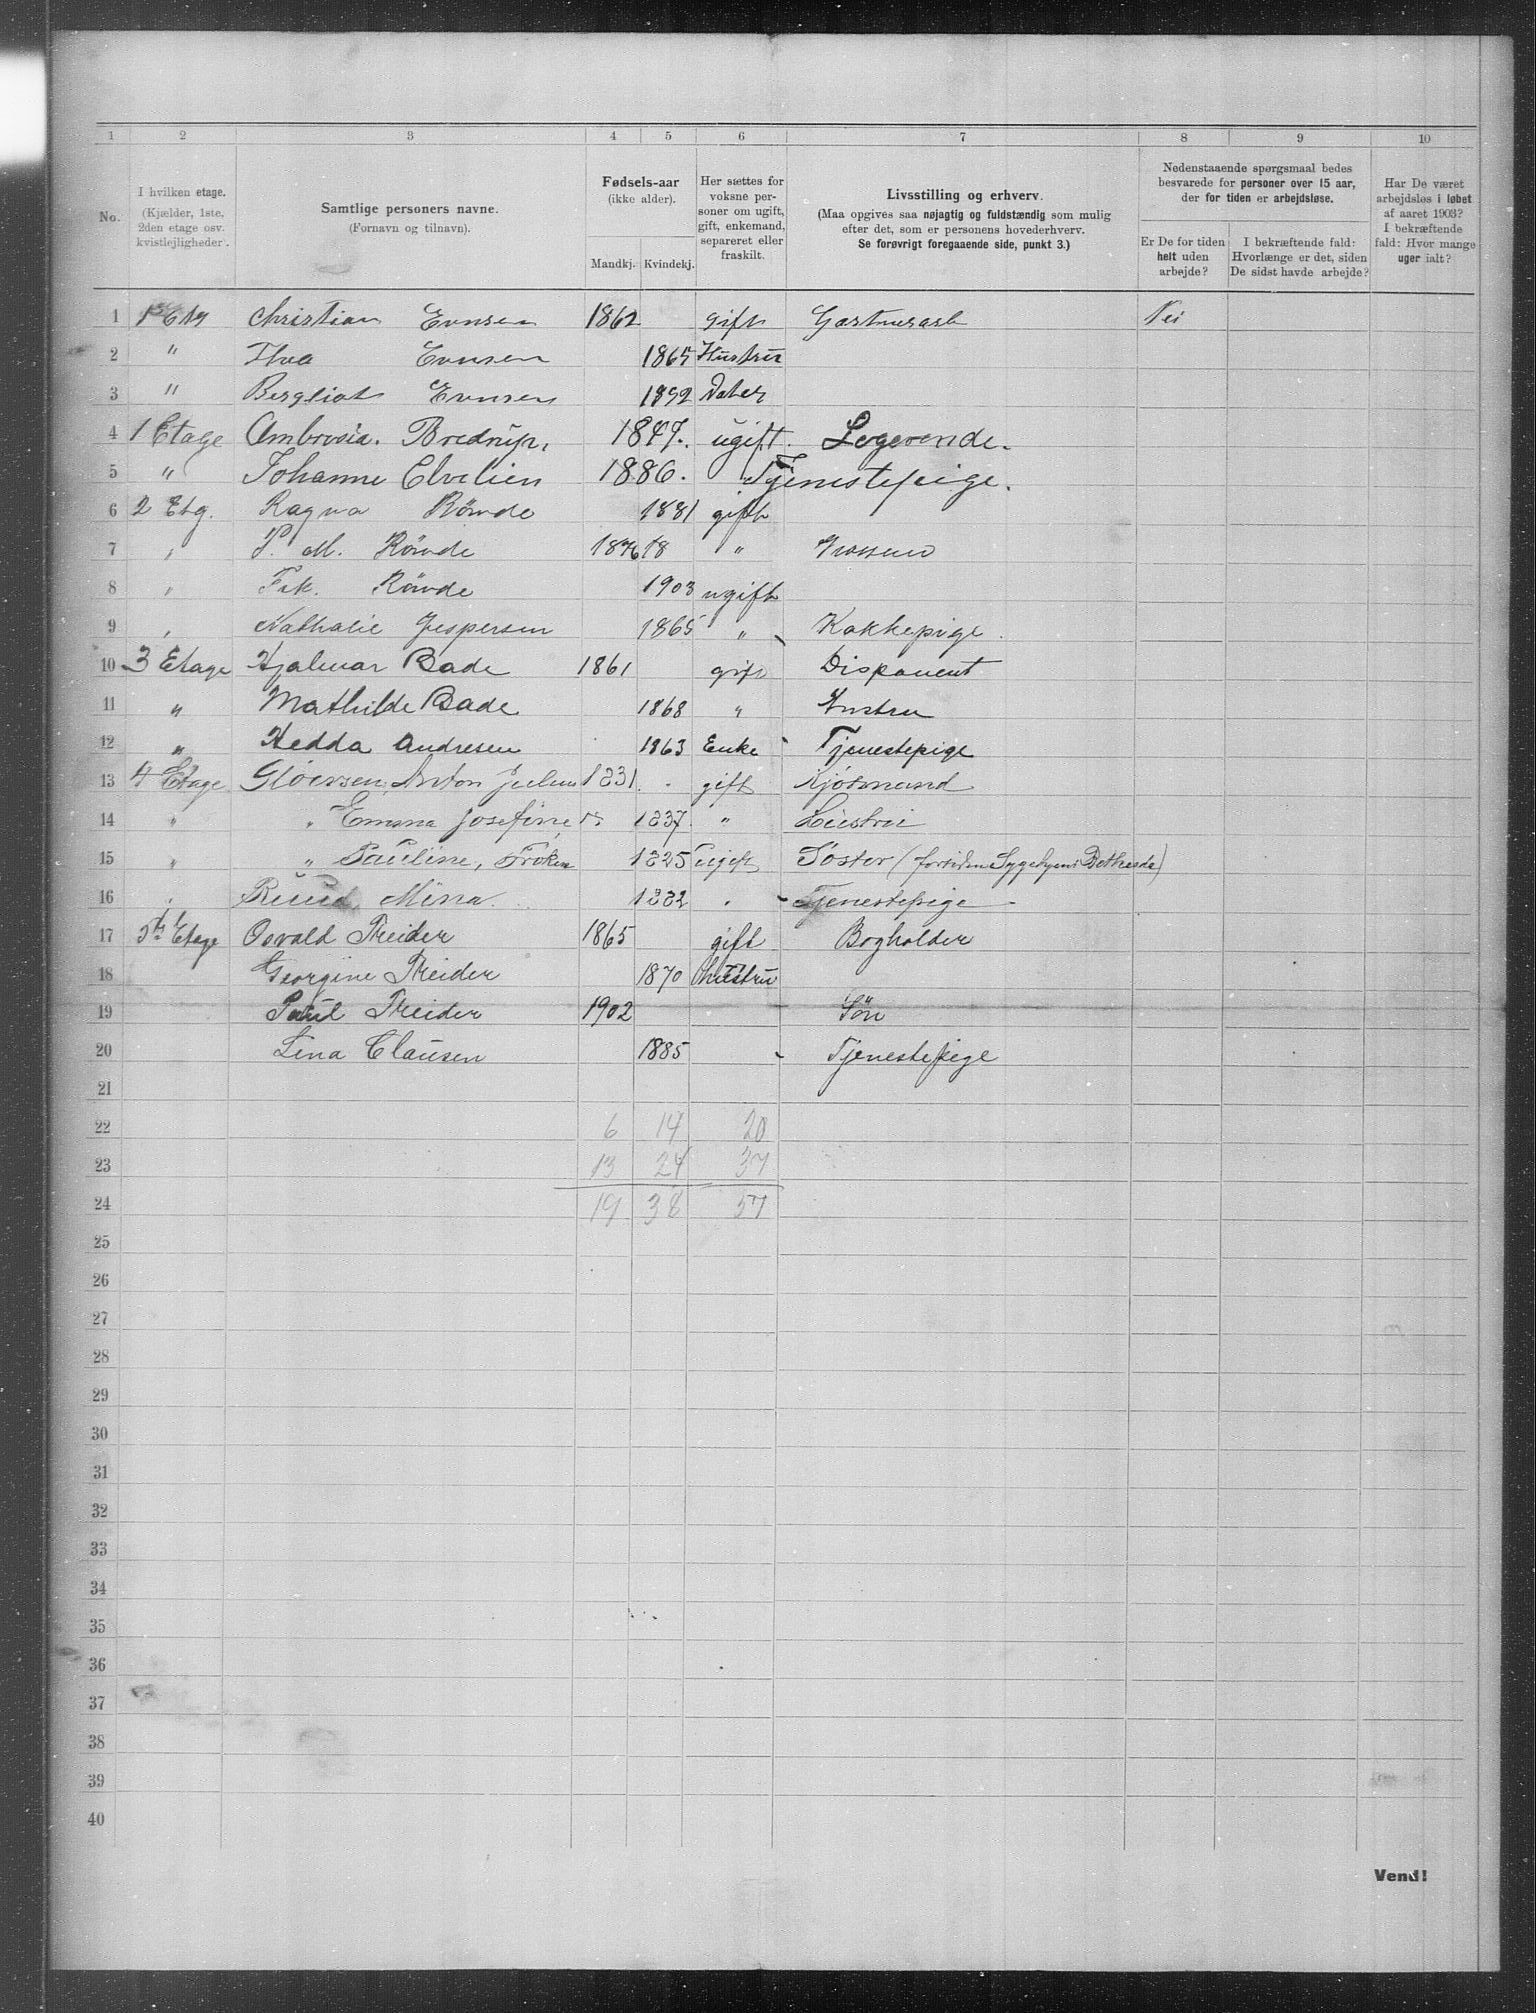 1 2 3 4 5 6 7 8 9 10
No.
I hvilken etage.
(Kjælder, 1ste, 2den etage osv. kvistlejligheder).
Samtlige personers navne.
(Fornavn og tilnavn).
Fødsels-aar
(ikke alder).
Mandkj. Kvindekj.
Her sættes for voksne personer om ugift, gift, enkemand, separeret eller fraskilt.
Livsstilling og erhverv.
(Maa opgives saa nøjagtig og fuldstændig som mulig efter det, som er personens hovederhverv.
Se forøvrigt foregaaende side, punkt 3.)
Nedenstaaende spørgsmaal bedes besvarede for personer over 15 aar, der for tiden er arbejdsløse.
Er De for tiden helt uden arbejde?
I bekræftende fald: Hvorlænge er det, siden De sidst havde arbejde?
Har De været arbejdsløs i løbet af aaret 1903? I bekræftende fald: Hvor mange uger ialt?
1 1ste Etg Christian Evnsen 1862 gift Gartnerarb Nei
2 " Thea Evnsen 1865 Hustru
3 " Bergliot Evnsen 1892 Dater
4 1 Etage Ambrosia. Bredrup, 1847. ugift. Logerende.
5 " Johanne Elvelien 1886. Tjenestepige.
6 2 Etg. Ragna Römde 1881 gift
7 " P. M. Römde 1876 78 " Grosserer
8 " Frk. Römde 1903 ugift
9 " Nathalie Jespersen 1865 " Kokkepige.
10 3 Etage Hjalmar Bade 1861 gift Disponent
11 " Mathilde Bade 1868 " Hustru
12 " Hedda Andresen 1863 Enke - Tjenestepige
13 4 Etage Gløersen, Anton Julius 1831. gift Kjøbmand
14 " " Emma Josefine 1837. " Hustru
15 " " Pauline, Frøken 1825 Ugift Søster (forhen Sygehjem Bethesda)
16 " Ruud, Mina. 1882 " - Tjenestepige -
17 5te Etage Osvald Treider 1865 gift Bogholder
18 Georgine Treider 1870 hustru
19 Paul Treider 1902 Søn
20 Lina Clausen 1885 - Tjenestepige
21
22 6 14 20
23 13 24 37
24 19 38 57
25
26
27
28
29
30
31
32
33
34
35
36
37
38
39
40
Vend!